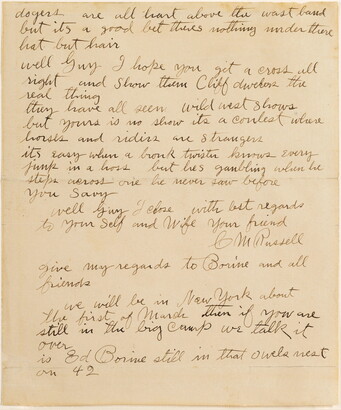 dogers are all hart above the wast band
but its a good bet theres nothing under there
hat but hair
well Guy I hope you get a cross all
right and show them Cliff dwelers the
real thing
they have all seen wild west shows
but yours is no show its a contest where
horses and riders are strangers
its easy when a bronk twister knows every
jump in a hors but hes gambling when he
steps across one he never saw before
you Savy
well Guy I close with best regards
to your Self and Wife your friend
C M Russell
give my regards to Borine and all
friends
we will be in New York about
the first of March then if you are
still in the big camp we talk it
over
is Ed Borine still in that owels nest
on 42